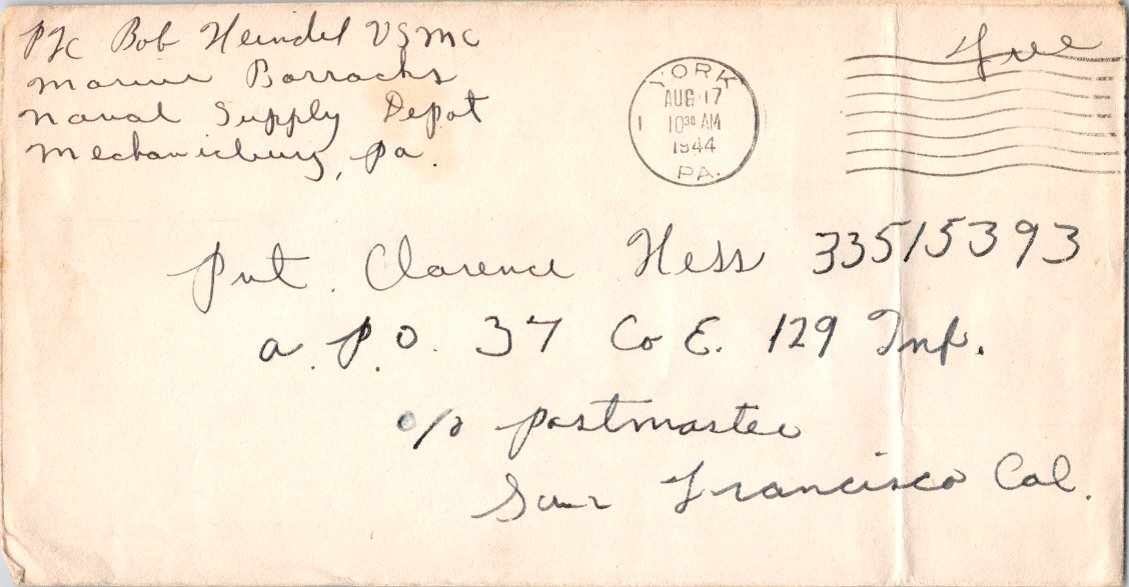 Pfc Bob Heindel USMC
Marine Barracks
Naval Supply Depot
Mechanicburg, Pa.
Free
YORK
AUG 17
10 30 AM
1944
PA.
1
Pvt. Clarence Hess 33515393
A.P.O. 37 Co E. 129 Inf.
c/o Postmaster
San Francisco Cal.